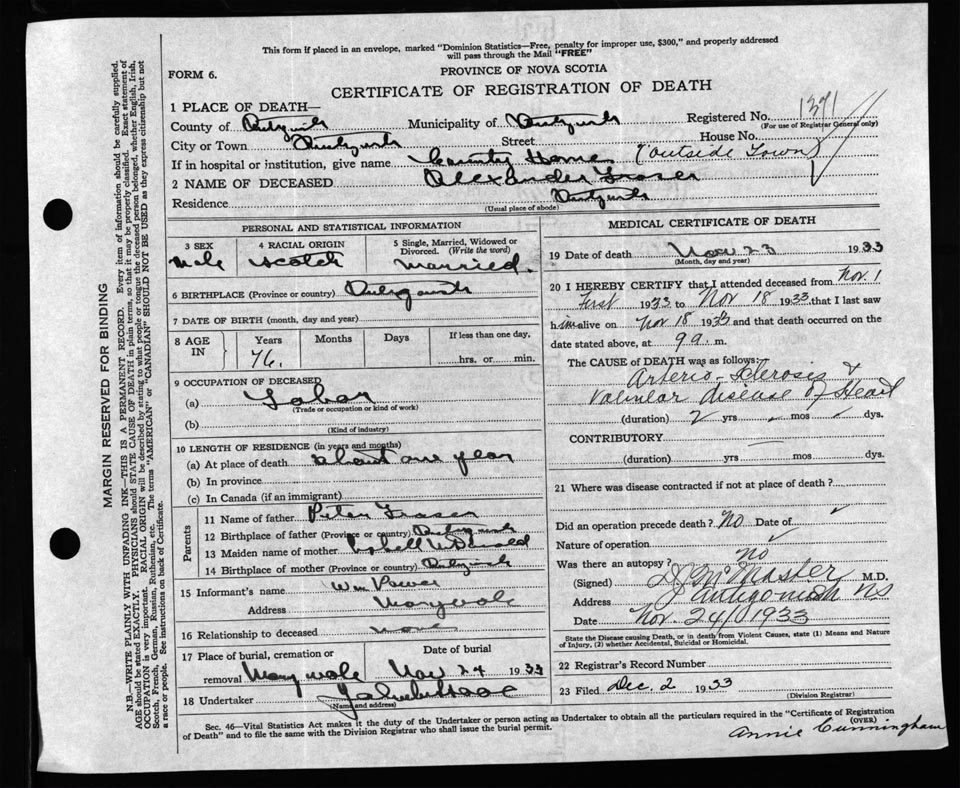 This form if placed in an envelope, marked "Dominion Statistics—Free, penalty for improper use, $300," and properly addressed
will pass through the Mail "FREE"
FORM 6.
PROVINCE OF NOVA SCOTIA
CERTIFICATE OF REGISTRATION OF DEATH
1 PLACE OF DEATH—
Registered No. 1371
(For use of Registrar General only)
County of Municipality of
City or Town Street House No.
If in hospital or institution, give name County Home (outside Town)
2 NAME OF DECEASED Alexander Fraser
Residence
(Usual place of abode)
PERSONAL AND STATISTICAL INFORMATION
3 SEX 4 RACIAL ORIGIN 5 Single, Married, Widowed or Divorced. (Write the word)
Male Scotch Married.
6 BIRTHPLACE (Province or country)
7 DATE OF BIRTH (month, day and year)
8 AGE IN Years Months Days If less than one day,
76. hrs. or min.
9 OCCUPATION OF DECEASED
(a) Labor
(Trade or occupation or kind of work)
(b)
(Kind of industry)
10 LENGTH OF RESIDENCE (in years and months)
(a) At place of death about one year
(b) In province
(c) In Canada (if an immigrant)
Parents
11 Name of father Peter Fraser
12 Birthplace of father (Province or country)
13 Maiden name of mother
14 Birthplace of mother (Province or country)
15 Informant's name Wm Power
Address Maryvale
16 Relationship to deceased none
17 Place of burial, cremation or Date of burial
removal Maryvale Nov 24 1933
18 Undertaker
(Name and address)
MEDICAL CERTIFICATE OF DEATH
19 Date of death Nov 23 1933
(Month, day and year)
20 I HEREBY CERTIFY that I attended deceased from Nov. 1
First 1933 to Nov 18 1933, that I last saw
him alive on Nov 18 1933 and that death occurred on the
date stated above, at m.
The CAUSE of DEATH was as follows:
Arterio-Sclerosis &
Valvular disease of Heart
(duration) 2 yrs mos dys.
CONTRIBUTORY
(duration) yrs mos dys.
21 Where was disease contracted if not at place of death?
Did an operation precede death? No Date of
Nature of operation
Was there an autopsy? No
(Signed) McMaster M.D.
Address Antigonish NS
Date Nov. 24/1933
State the Disease causing Death, or in death from Violent Causes, state (1) Means and Nature
of Injury, (2) whether Accidental, Suicidal or Homicidal.
22 Registrar's Record Number
23 Filed Dec. 2 1933
(Division Registrar)
Annie Cunningham
Sec. 46—Vital Statistics Act makes it the duty of the Undertaker or person acting as Undertaker to obtain all the particulars required in the "Certificate of Registration
of Death" and to file the same with the Division Registrar who shall issue the burial permit.
(OVER)
MARGIN RESERVED FOR BINDING
N.B.—WRITE PLAINLY WITH UNFADING INK—THIS IS A PERMANENT RECORD. Every item of information should be carefully supplied.
AGE should be stated EXACTLY. PHYSICIANS should STATE CAUSE OF DEATH in plain terms, so that it may be properly classified. Exact statement of
OCCUPATION is very important. RACIAL ORIGIN will be described by stating to what people or tongue the deceased person belonged, whether English, Irish,
Scotch, French, German, Russian, Ruthenian, etc. The terms "AMERICAN" or "CANADIAN" SHOULD NOT BE USED as they express citizenship but not
a race or people. See instructions on back of Certificate.